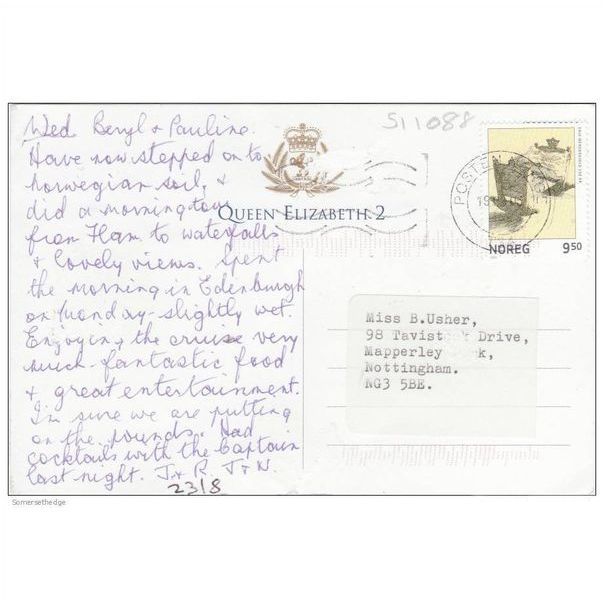 Wed. Beryl & Pauline.
Have now stepped on to
norwegian soil, &
did a morning tour
from Flam to waterfalls
& lovely views. Spent
the morning in Edenburgh
on Monday - slightly wet.
Enjoying the cruise very
much - fantastic food
& great entertainment.
I'm sure we are putting
on the pounds! Had
cocktails with the Captain
last night. J & R. J & N.
23/8
QUEEN ELIZABETH 2
S11088
POSTE
19
NOREG 950
Miss B.Usher,
98 Tavistock Drive,
Mapperley
Nottingham.
NG3 5BE.
Somersethedge